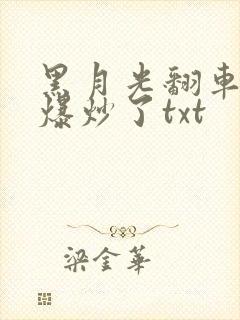 黑月光翻車
爆炒了txt
梁金華